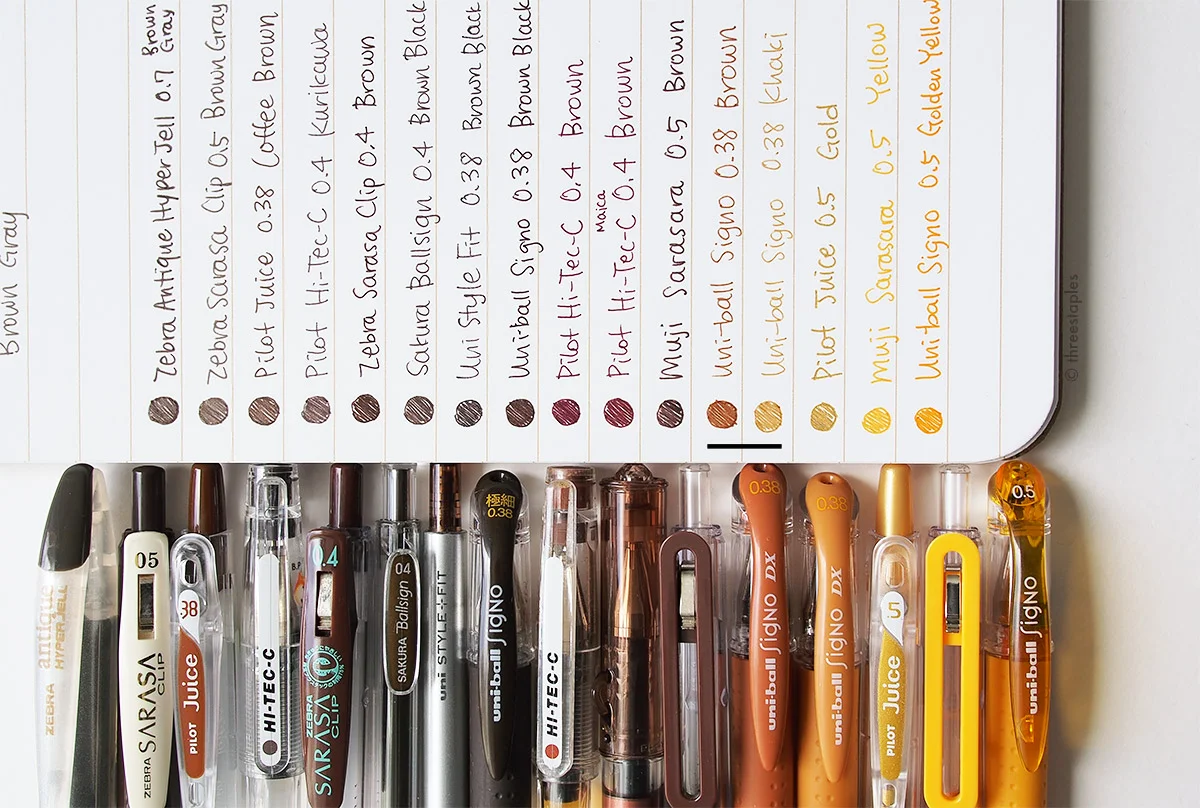 Brown Gray
Zebra Antique Hyper Jell 0.7 Brown Gray
Zebra Sarasa Clip 0.5 Brown Gray
Pilot Juice 0.38 Coffee Brown
Pilot Hi-Tec-C 0.4 Kurikawa
Zebra Sarasa Clip 0.4 Brown
Sakura Ballsign 0.4 Brown Black
Uni Style Fit 0.38 Brown Black
Uni-ball Signo 0.38 Brown Black
Pilot Hi-Tec-C 0.4 Brown
Pilot Hi-Tec-C Maica 0.4 Brown
Muji Sarasara 0.5 Brown
Uni-ball Signo 0.38 Brown
Uni-ball Signo 0.38 Khaki
Pilot Juice 0.5 Gold
Muji Sarasara 0.5 Yellow
Uni-ball Signo 0.5 Golden Yellow
© threestaples
ZEBRA antique HYPER JELL
05 ZEBRA SARASA CLIP
38 PILOT Juice
HI-TEC-C
0.4 ZEBRA SARASA CLIP
04 SAKURA Ballsign
uni STYLE+FIT
極細 0.38 uni-ball SigNo
HI-TEC-C
0.38 uni-ball SigNo DX
0.38 uni-ball SigNo DX
5 PILOT Juice
0.5 uni-ball SigNo